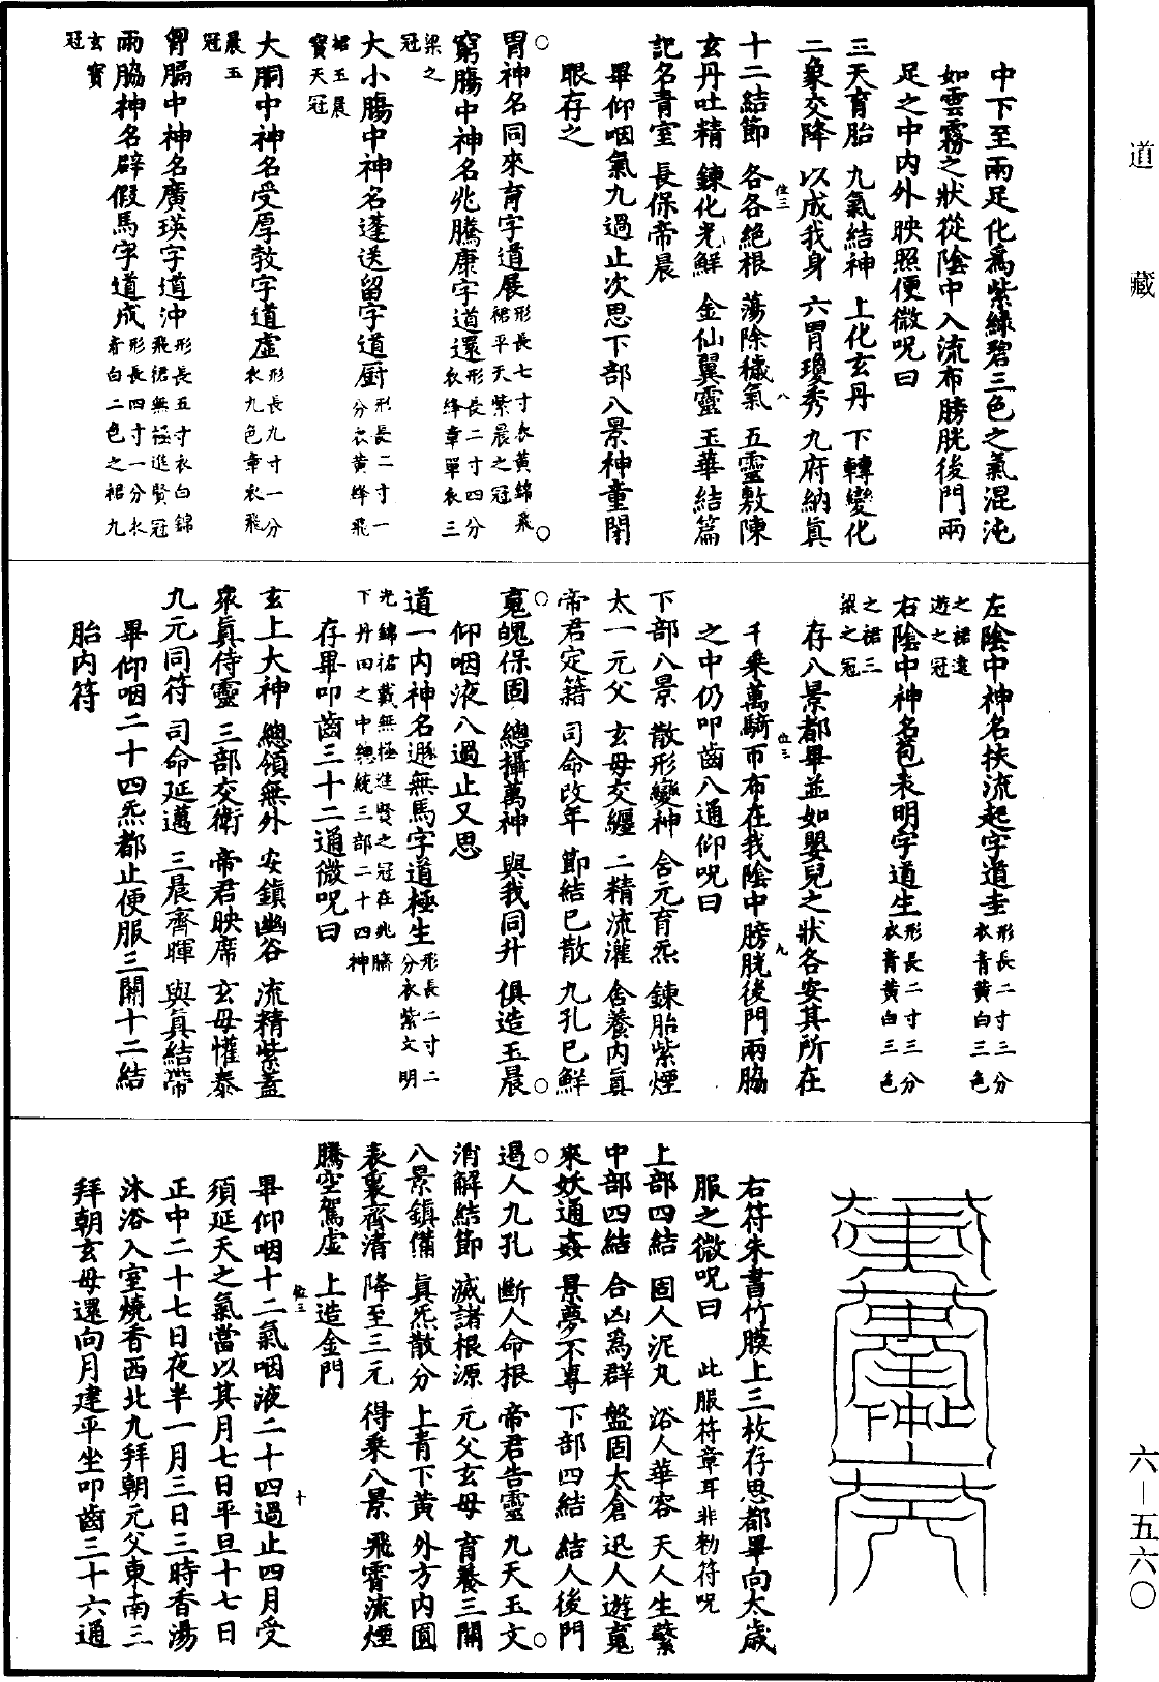 中下至兩足化爲紫綠碧三色之氣混沌
如雲霧之狀從陰中入流布膀胱後門兩
足之中内外映照便微呪曰
三天育胎　九氣結神　上化玄丹　下轉變化
二象交降　以成我身　六胃瓊秀　九府納真
十二結節　各各絶根　蕩除穢氣　五靈敷陳
玄丹吐精　鍊化光鮮　金仙翼靈　玉華結篇
記名青室　長保帝晨
畢仰咽氣九過止次思下部八景神童閉
眼存之
胃神名同來育字道展形長七寸衣黄錦飛
裙平天紫晨之冠
窮膓中神名兆騰康字道還形長二寸四分
衣絳章單衣三
梁之
冠
大小膓中神名蓬送留字道厨形長二寸一
分衣黄絳飛
裙玉晨
寶天冠
大胴中神名受厚勃字道虛形長九寸一分
衣九色章衣飛
晨玉
冠
胷膈中神名廣瑛字道沖形長五寸衣白錦
飛裙無極進賢冠
兩脇神名辟假馬字道成形長四寸一分衣
青白二色之裙九
玄寶
冠
左陰中神名扶流起字道圭形長二寸三分
衣青黄白三色
之裙遠
遊之冠
右陰中神名苞表明字道生形長二寸三分
衣青黄白三色
之裙三
梁之冠
存八景都畢並如嬰兒之狀各安其所在
千乘萬騎而布在我陰中膀胱後門兩脇
之中仍叩齒八通仰呪曰
下部八景　散形變神　含元育炁　鍊胎紫煙
太一元父　玄母交纏　二精流灌　含養内真
帝君定籍　司命改年　節結已散　九孔已鮮
䰟魄保固　總攝萬神　與我同升　俱造玉晨
仰咽液八過止又思
道一内神名遁無馬字道極生形長二寸二
分衣紫文明
光錦裙戴無極進賢之冠在兆臍
下丹田之中總統三部二十四神
存畢叩齒三十二通微呪曰
玄上大神　總領無外　安鎮幽谷　流精紫蓋
衆真侍靈　三部交衛　帝君映席　玄母懽泰
九元同符　司命延邁　三晨齊暉　與真結帶
畢仰咽二十四炁都止便服三關十二結
胎内符
右符朱書竹膜上三枚存思都畢向太歲
服之微呪曰　此服符章耳非勑符呪
上部四結　固人泥丸　浴人華容　天人生繁
中部四結　合凶爲群　盤固太倉　迅人遊䰟
來妖通姦　景夢不專　下部四結　結人後門
遏人九孔　斷人命根　帝君告靈　九天玉文
消解結節　滅諸根源　元父玄母　育養三關
八景鎮備　真炁散分　上青下黄　外方内圓
表裏齊清　降至三元　得乘八景　飛霄流煙
騰空駕虛　上造金門
畢仰咽十二氣咽液二十四過止四月受
須延天之氣當以其月七日平旦十七日
正中二十七日夜半一月三日三時香湯
沐浴入室燒香西北九拜朝元父東南三
拜朝玄母還向月建平坐叩齒三十六通
道　藏
六—五六〇